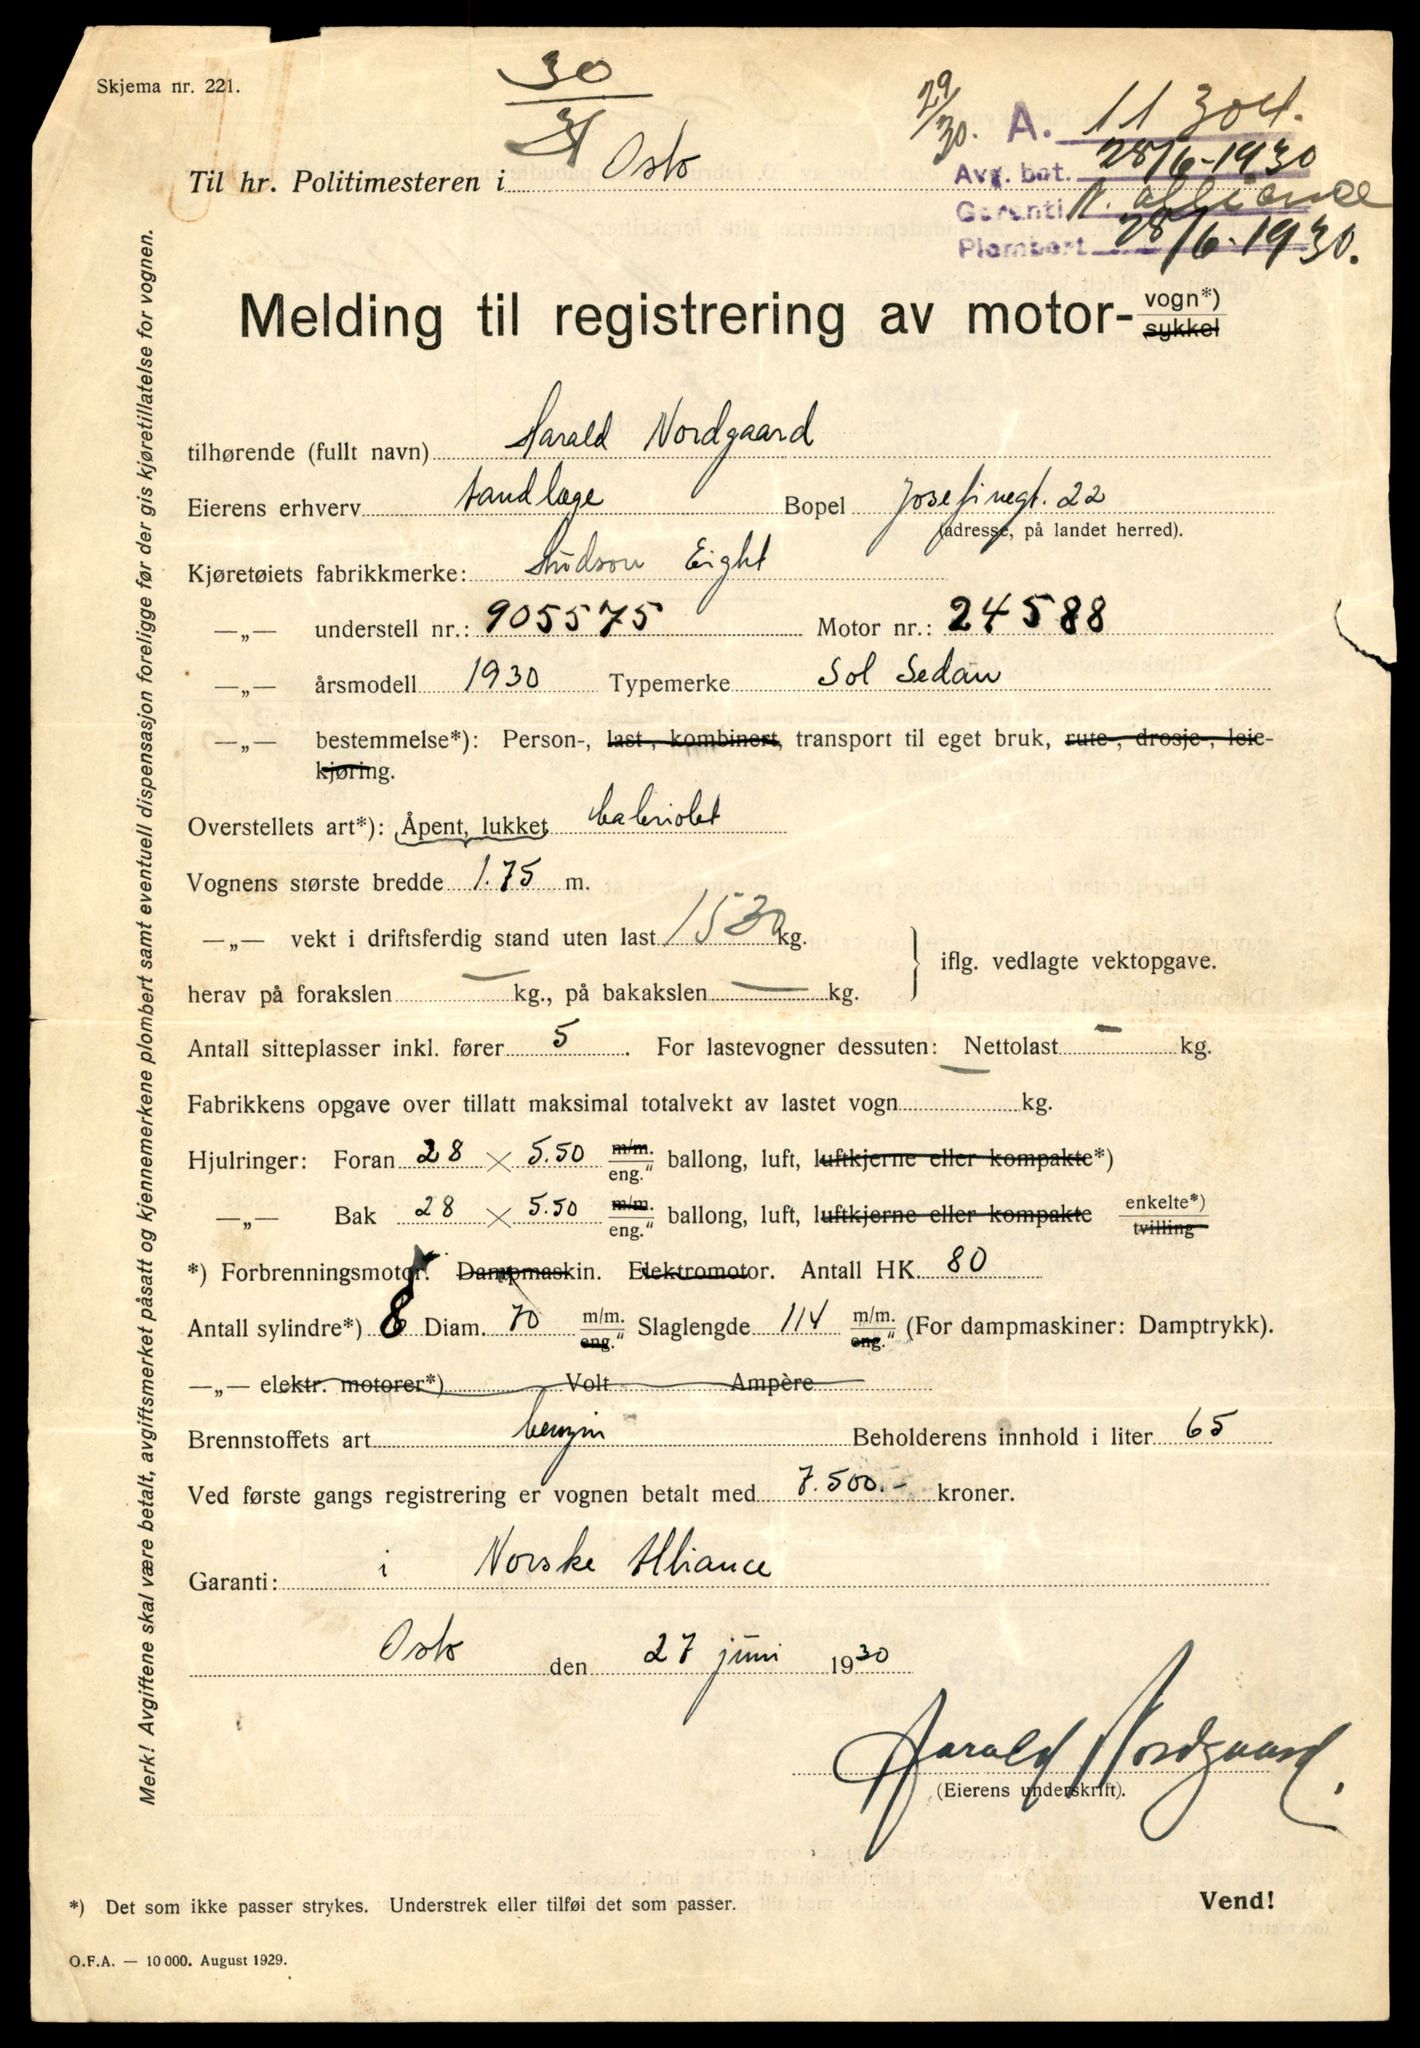 Skjema nr. 221.
30
31
29/30.
A. 11304.
Avg. bet. 28/6-1930
Garanti N. Alliance
Plombert 28/6-1930.
Til hr. Politimesteren i Oslo
Melding til registrering av motor- vogn*)
sykkel
tilhørende (fullt navn) Harald Nordgaard
Eierens erhverv tandlæge Bopel Josefinegt. 22
(adresse, på landet herred).
Kjøretøiets fabrikkmerke: Hudson Eight
—„— understell nr.: 905575 Motor nr.: 24588
—„— årsmodell 1930 Typemerke Sol Sedan
—„— bestemmelse*): Person-, last-, kombinert, transport til eget bruk, rute-, drosje-, leie-
kjøring.
Overstellets art*): Åpent, lukket cabriolet
Vognens største bredde 1.75 m.
—„— vekt i driftsferdig stand uten last 1530 kg.
herav på forakslen — kg., på bakakslen — kg.
iflg. vedlagte vektopgave.
Antall sitteplasser inkl. fører 5. For lastevogner dessuten: Nettolast — kg.
Fabrikkens opgave over tillatt maksimal totalvekt av lastet vogn — kg.
Hjulringer: Foran 28 × 5.50 m/m. eng." ballong, luft, luftkjerne eller kompakte*)
—„— Bak 28 × 5.50 m/m. eng." ballong, luft, luftkjerne eller kompakte enkelte*) tvilling
*) Forbrenningsmotor. Dampmaskin. Elektromotor. Antall HK. 80
Antall sylindre*) 8 Diam. 70 m/m. eng." Slaglengde 114 m/m. eng." (For dampmaskiner: Damptrykk).
—„— elektr. motorer*) Volt Ampère
Brennstoffets art benzin Beholderens innhold i liter 65
Ved første gangs registrering er vognen betalt med 7.500.- kroner.
Garanti: i Norske Alliance
Oslo den 27 juni 1930
Harald Nordgaard.
(Eierens underskrift).
*) Det som ikke passer strykes. Understrek eller tilføi det som passer.
Vend!
O.F.A. — 10 000. August 1929.
Merk! Avgiftene skal være betalt, avgiftsmerket påsatt og kjennemerkene plombert samt eventuell dispensasjon foreligge før der gis kjøretillatelse for vognen.